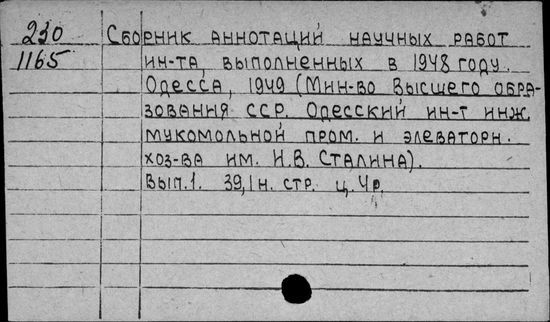 230 Сборник аннотаций научных работ
1165 ин-та, выполненных в 1948 году.
Одесса, 1949 (Мин-во высшего обра-
зования ССР. Одесский ин-т инж.
мукомольной пром. и элеваторн.
хоз-ва им. И.В. Сталина).
Вып.1. 39,1н. стр. ц. 4р.